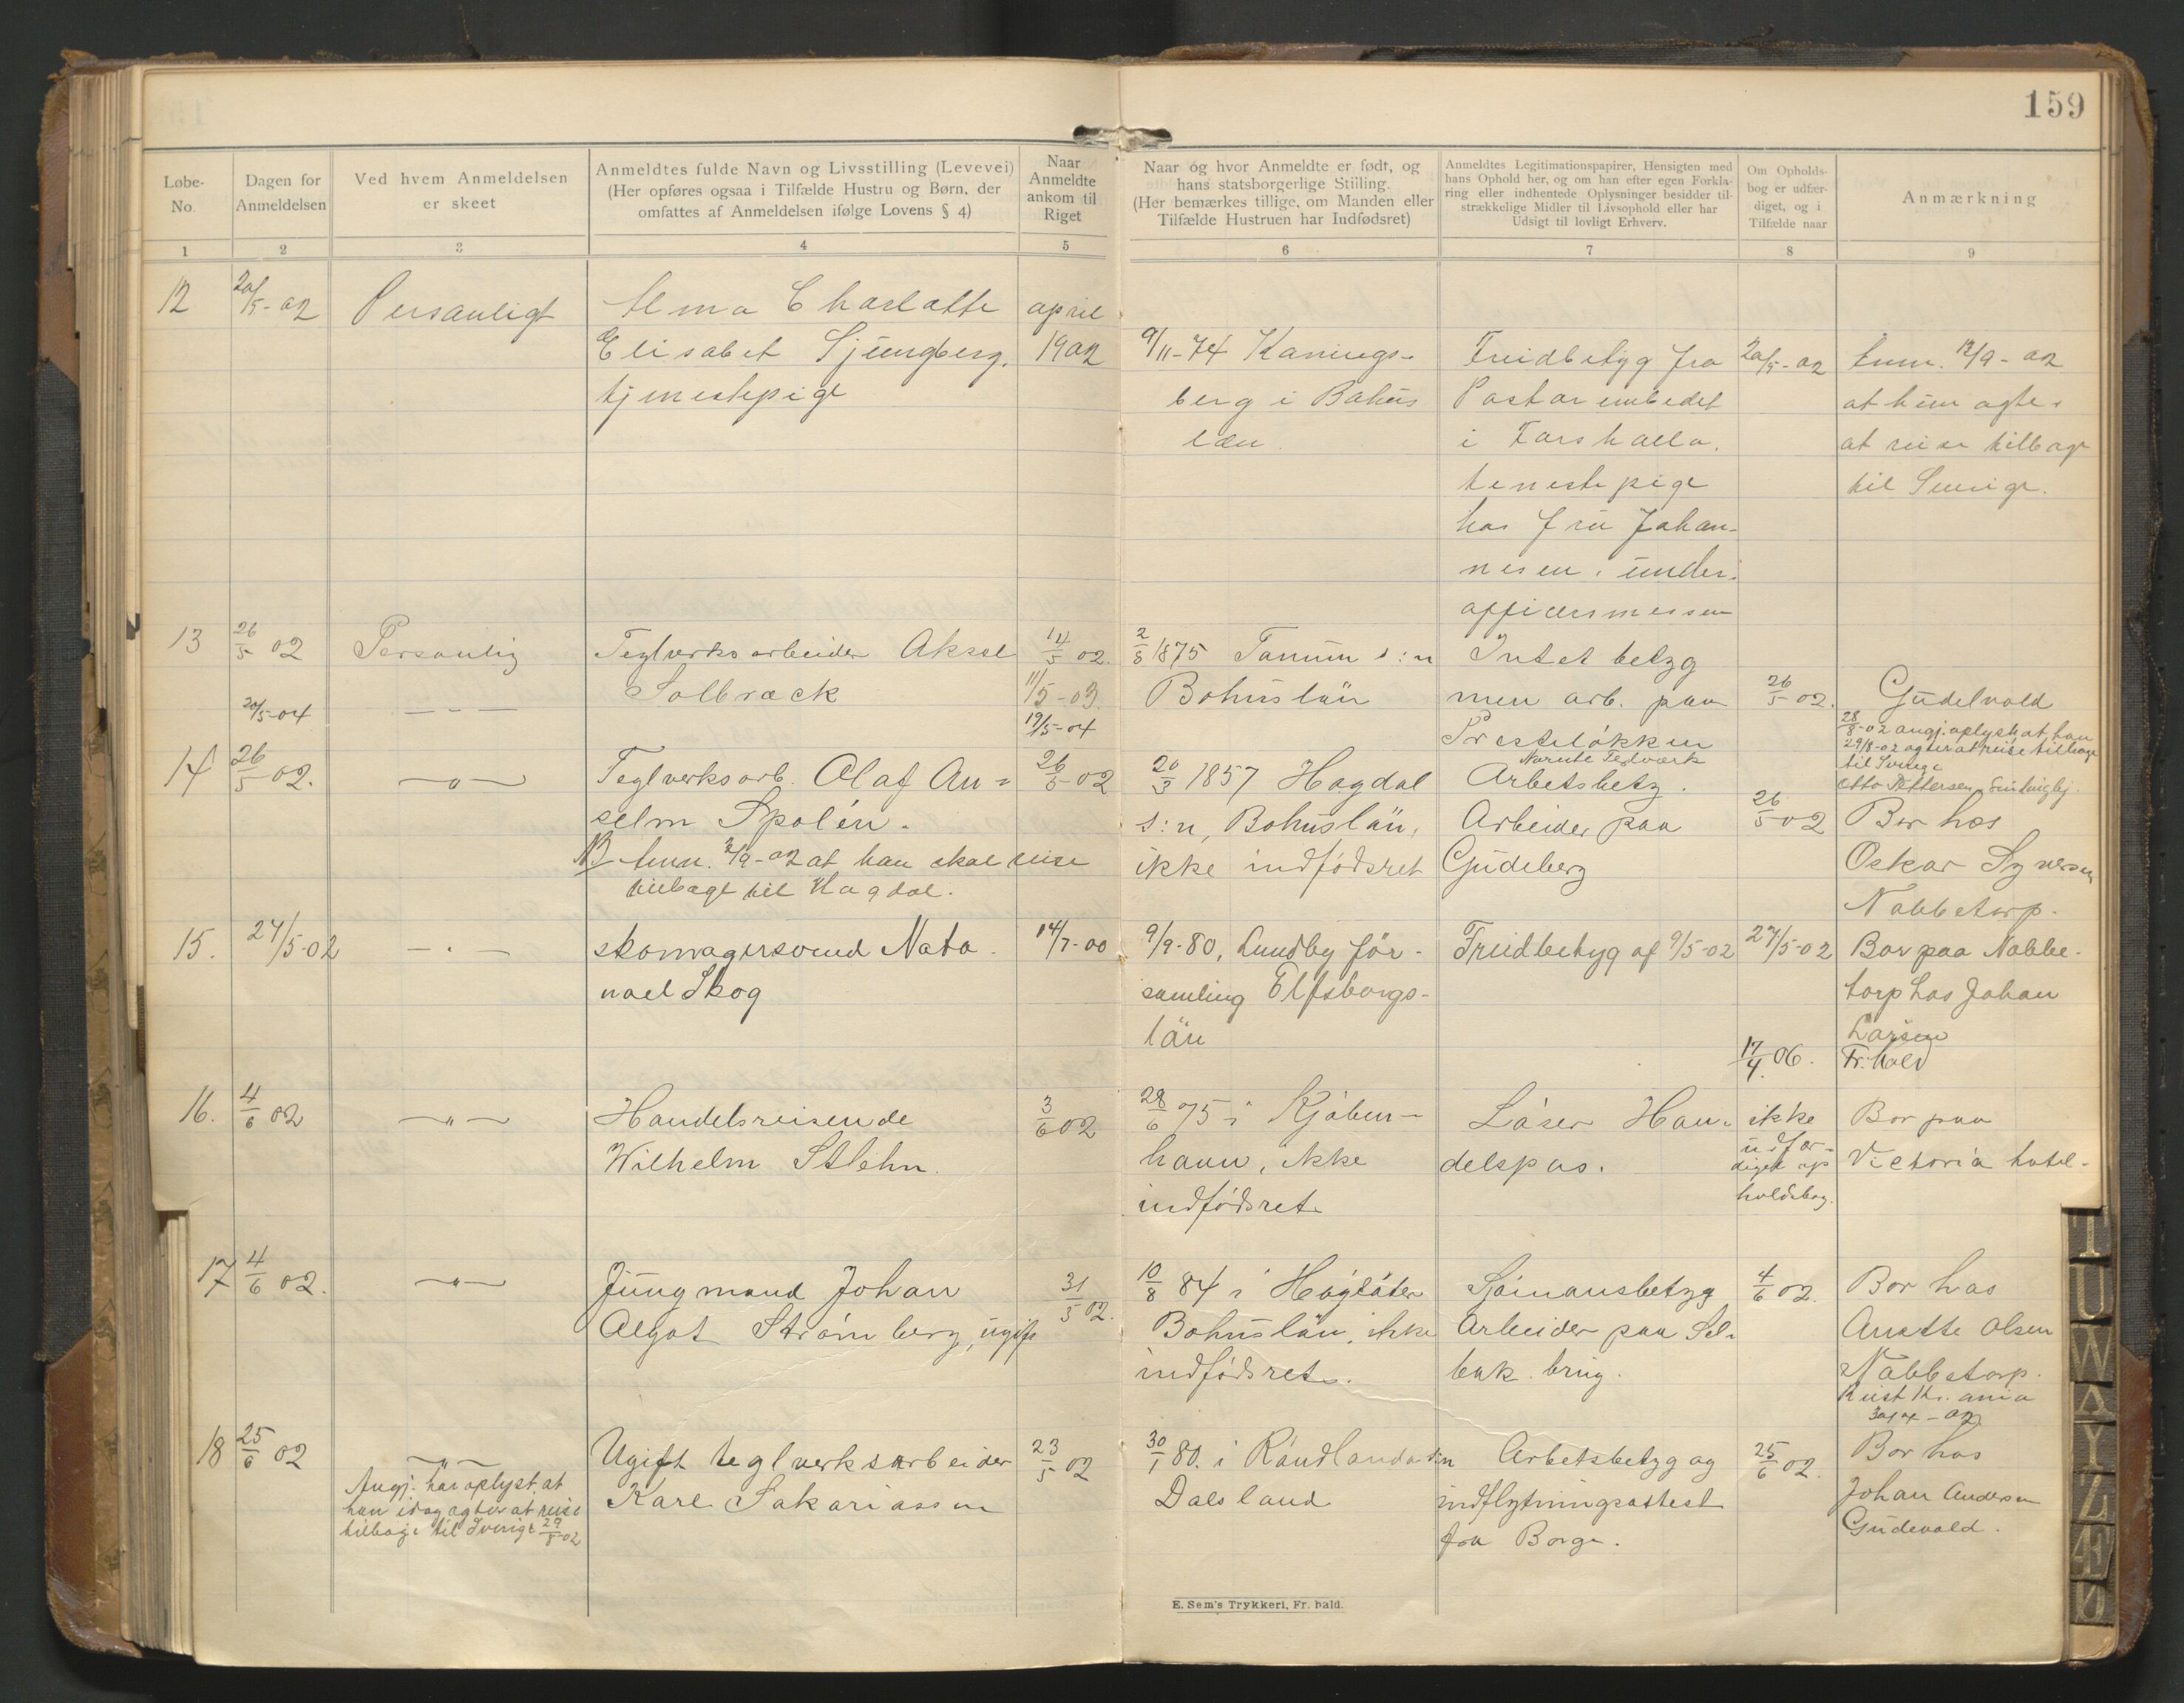 159
Løbe-
No.
Dagen for
Anmeldelsen
Ved hvem Anmeldelsen
er skeet
Anmeldtes fulde Navn og Livsstilling (Levevei)
(Her opføres ogsaa i Tilfælde Hustru og Børn, der
omfattes af Anmeldelsen ifølge Lovens § 4)
Naar
Anmeldte
ankom til
Riget
Naar og hvor Anmeldte er født, og
hans statsborgerlige Stiiling.
(Her bemærkes tillige, om Manden eller
Tilfælde Hustruen har Indfødsret)
Anmeldtes Legitimationspapirer, Hensigten med
hans Ophold her, og om han efter egen Forkla-
ring eller indhentede Oplysninger besidder til-
strækkelige Midler til Livsophold eller har
Udsigt til lovligt Erhverv.
Om Opholds-
bog er udfær-
diget, og i
Tilfælde naar
Anmærkning
1 2 3 4 5 6 7 8 9
12
20/5-02
Personligt
Alma Charlotte
Elisabet Ljungberg,
tjenestepige
april
1902
9/11-74 Konings-
berg i Bohus
læn
Freidbetyg fra
Pastorembedet
i Forshaella.
tenestepige
hos fru Johan-
nesen, under-
officersmessen
20/5-02
Anm. 12/9-02
at hun agter
at reise tilbage
til Sverige.
13
26/5 02
Personlig
Teglverksarbeider Aksel
Solbrack
14/5 02.
11/5-03
2/8 1875 Tanum s:n
Bohuslän
Intet betyg
men arb. paa
Presteløkken
26/5 02.
Gudelvold
28/8-02 angj. oplyst at han
29/8-02 agter at reise tilbage
til Sverige
20/5-04
19/5-04
Narute Teglværk
Otto Pettersen
14
26/5 02.
Teglverksarb. Olaf An=
selm Spolén.
NB Anm. 2/9-02 at han skal reise
tilbage til Hogdal.
26/5 02
20/3 1857 Hogdal
s:n, Bohuslän,
ikke indfødsret
Arbetsbetg.
Arbeider paa
Gudeberg
26/5 02
Bor hos
Oskar Syversen
Nabbetorp.
15.
27/5-02
skomagersvend Nata-
nael Skog
14/7-00
9/9-80, Lundby för-
samling Elfsborgs-
län
Freidbetyg af 9/5-02
27/5-02
Bor paa Nabbe-
torp hos Johan
Larsen
17/4 06.
Fr.hald
16.
4/6 02
Handelsreisende
Wilhelm Stlehn.
3/6 02
28/6 75 i Kjøben-
havn, ikke
indfødsret
Løser Han-
delspas.
ikke
udfær-
diget op
holdsbog.
Bor paa
Victoria hotel-
17
4/6 02.
Jungmand Johan
Algot Strømberg, ugift
31/5 02.
10/8 84 i Høgsäter
Bohuslän, ikke
indfødsret.
Sjømansbetyg
Arbeider paa Sel-
bak brug.
4/6 02.
Bor hos
Anette Olsen
Nabbetorp.
Reist Kr.ania
18
25/6 02
Angj. har oplyst, at
han idag agter at reise
tilbage til Sverige 29/8-02
Ugift teglverksarbeider
Karl Sakariassen
23/5 02
30/1 80. i Råndlanda s:n
Dalsland
Arbetsbetyg og
indflytningsattest
fra Borge.
25/6 02.
Bor hos
Johan Andersen
Gudevold.
E. Sem's Trykkeri, Fr.hald.
T
U
W
A
Y
Z
Æ
Ø